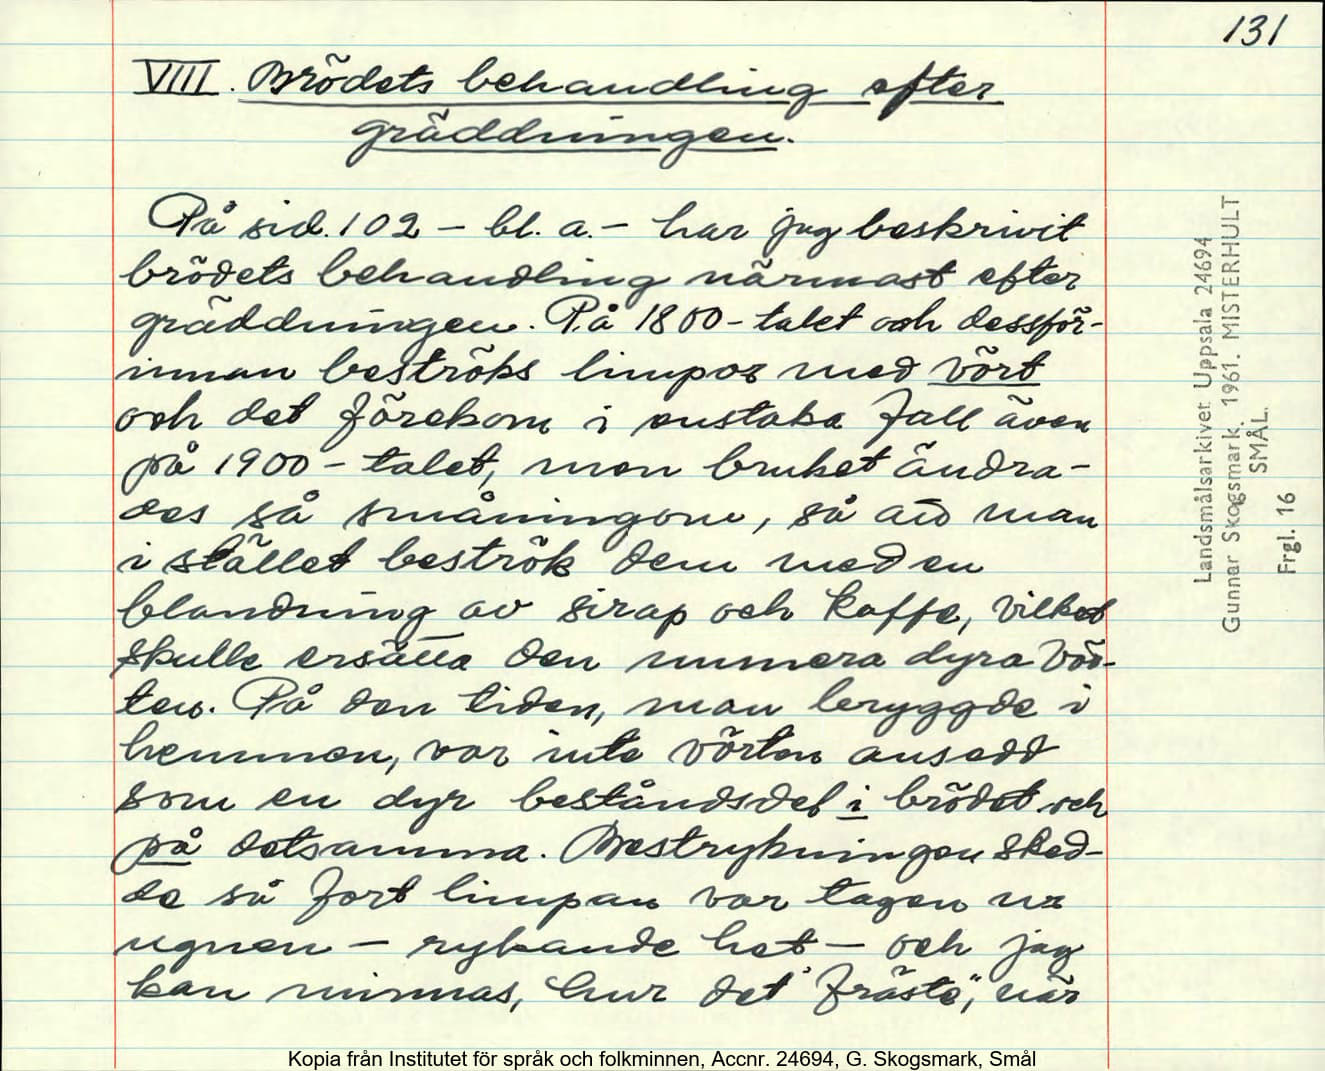 131
VIII. Brödets behandling efter
gräddningen.
På sid. 102 – bl. a. – har jag beskrivit
brödets behandling närmast efter
gräddningen. På 1800-talet och dessför-
innan beströks limpor med vört
och det förekom i enstaka fall även
på 1900-talet, men bruket ändra-
des så småningom, så att man
i stället beströk dem med en
blandning av sirap och kaffe, vilket
skulle ersätta den numera dyra vör-
ten. På den tiden, man bryggde i
hemmen, var inte vörten ansedd
som en dyr beståndsdel i brödet och
på detsamma. Bestrykningen sked-
de så fort limpan var tagen ur
ugnen – rykande het – och jag
kan minnas, hur det "fräste", när
Landsmålsarkivet Uppsala 24694
Gunnar Skogsmark. 1961. MISTERHULT
SMÅL.
Frgl. 16
Kopia från Institutet för språk och folkminnen, Accnr. 24694, G. Skogsmark, Smål